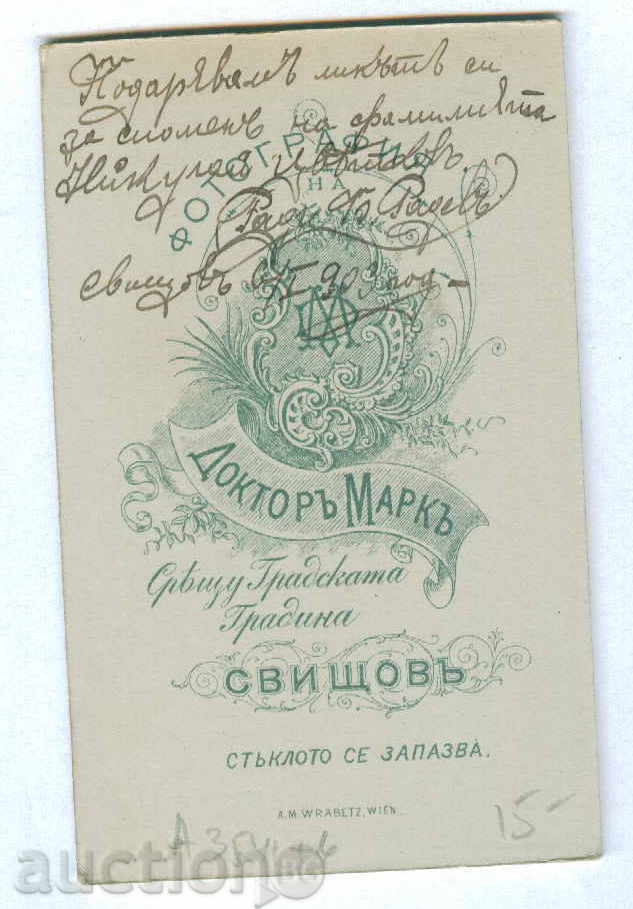 Подарявамъ ликътъ си
за споменъ на фамилията
ФОТОГРАФИЯ
НА
Радевъ
Свищовъ 903 год –
ДМ
ДОКТОРЪ МАРКЪ
Срѣщу Градската
Градина
СВИЩОВЪ
СТЬКЛОТО СЕ ЗАПАЗВА.
A.M. WRABETZ, WIEN.
15-
auction